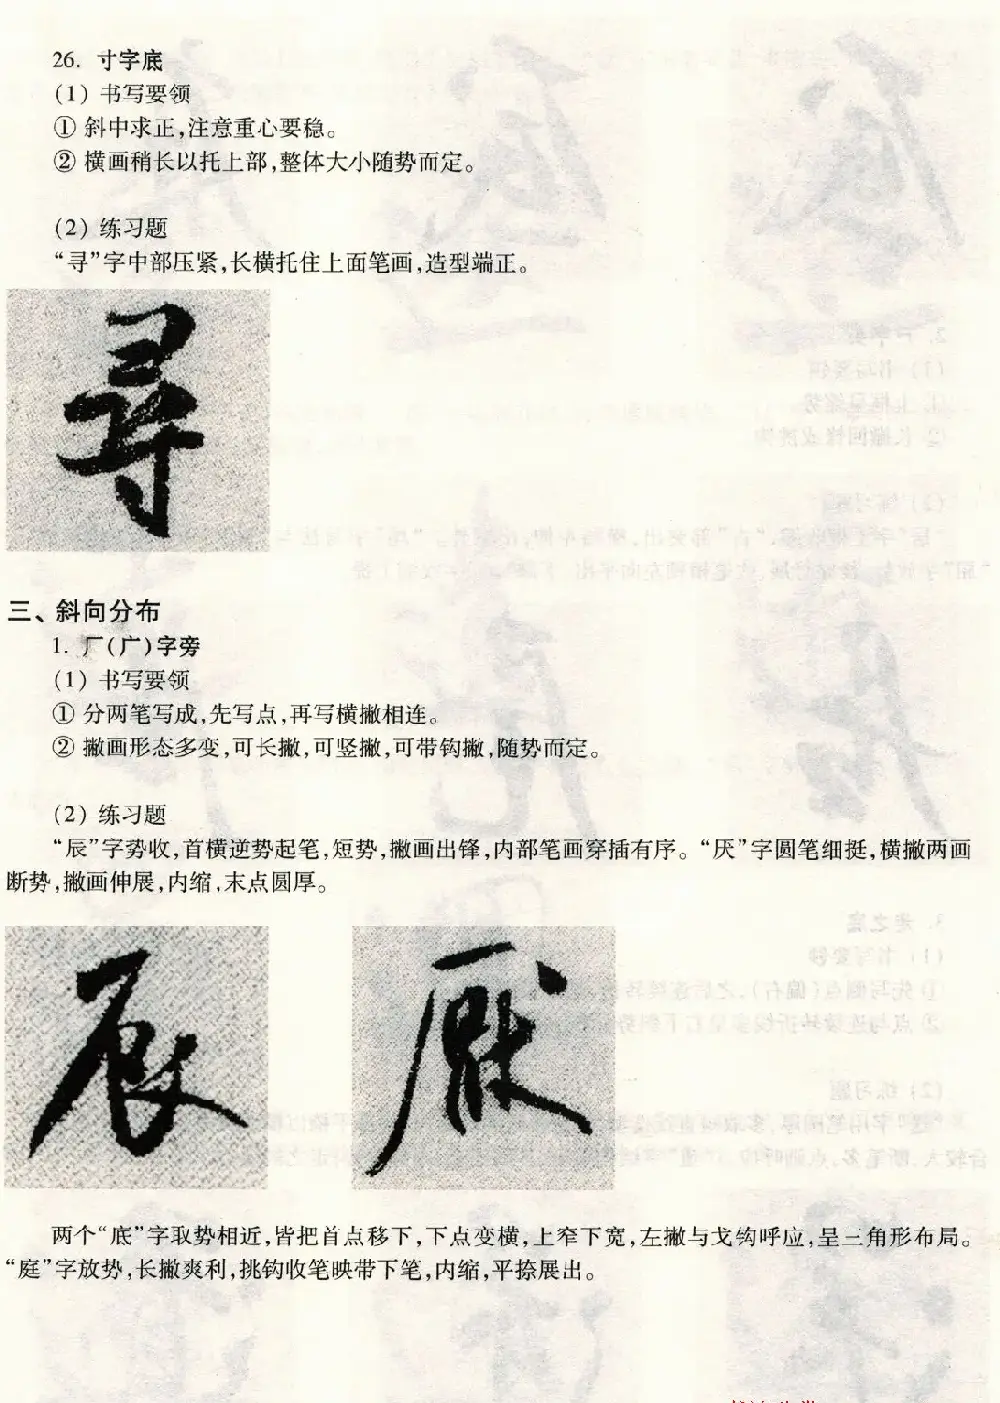 26. 寸字底
(1) 书写要领
① 斜中求正,注意重心要稳。
② 横画稍长以托上部,整体大小随势而定。
(2) 练习题
“寻”字中部压紧,长横托住上面笔画,造型端正。
尋
三、斜向分布
1. 厂(广)字旁
(1) 书写要领
① 分两笔写成,先写点,再写横撇相连。
② 撇画形态多变,可长撇,可竖撇,可带钩撇,随势而定。
(2) 练习题
“辰”字势收,首横逆势起笔,短势,撇画出锋,内部笔画穿插有序。“厌”字圆笔细挺,横撇两画
断势,撇画伸展,内缩,末点圆厚。
辰 厭
两个“底”字取势相近,皆把首点移下,下点变横,上窄下宽,左撇与戈钩呼应,呈三角形布局。
“庭”字放势,长撇爽利,挑钩收笔映带下笔,内缩,平捺展出。